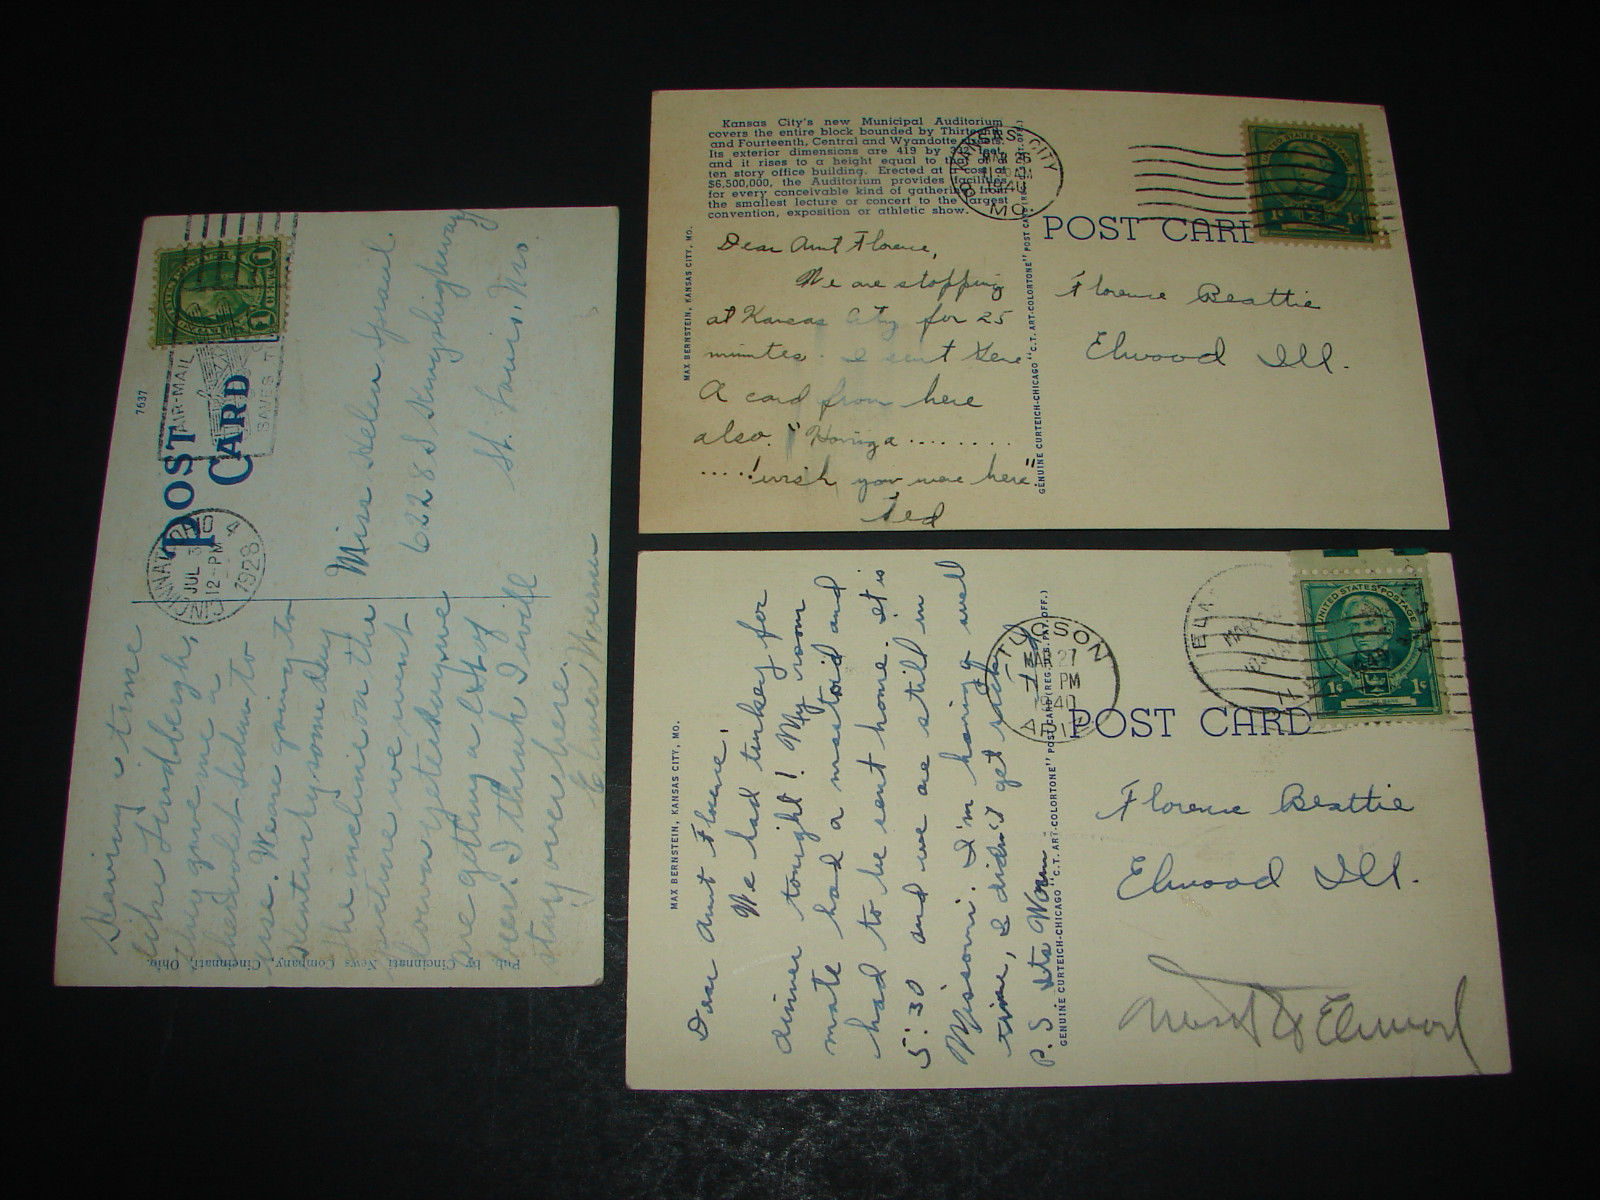 7637
POST
CARD
AIR-MAIL
SAVES TI
CINCINNATI OHIO
JUL 3
12-PM
1928
1 CENT 1
Miss Helen Spaul
6228 S Kingshighway
St. Louis, Mo.
Having a time
like Lindbergh,
they gave me a
chedvolet Sedan to
use. We are going to
Kentucky some day
the incline on the
we went
down yetedaywe
are getting a lot of
beer. I think I will
stay over here.
Elmer Woerner
Pub. by Cincinnati News Company, Cincinnati, Ohio.
Kansas City's new Municipal Auditorium
covers the entire block bounded by Thirteenth
and Fourteenth, Central and Wyandotte streets.
Its exterior dimensions are 419 by 332 feet,
and it rises to a height equal to that of a
ten story office building. Erected at a cost of
$6,500,000, the Auditorium provides facilities
for every conceivable kind of gathering from
the smallest lecture or concert to the largest
convention, exposition or athletic show.
KANSAS CITY
MAR 26
1940
MO.
UNITED STATES POSTAGE
1c 1c
POST CARD
MAX BERNSTEIN, KANSAS CITY, MO.
GENUINE CURTEICH-CHICAGO "C.T. ART-COLORTONE" POST CARD (REG. U.S. PAT. OFF.)
Dear Aunt Florence,
We are stopping
at Kansas City for 25
minutes. I sent Gene
A card from here
also. "Having a ........
....! wish you were here"
Ted
Florence Beattie
Elwood Ill.
MAX BERNSTEIN, KANSAS CITY, MO.
GENUINE CURTEICH-CHICAGO "C.T. ART-COLORTONE" POST CARD (REG. U.S. PAT. OFF.)
TUCSON
MAR 27
PM
1940
ARIZ
UNITED STATES POSTAGE
1c 1c
HORACE MANN
POST CARD
Dear Aunt Florence,
We had turkey for
dinner tonight! My room
mate had a mastoid and
had to be sent home. It is
5:30 and we are still in
Missouri. I'm having a well
time, I didn't get
P.S. Its Warm
Ted
Florence Beattie
Elwood Ill.
Elwood